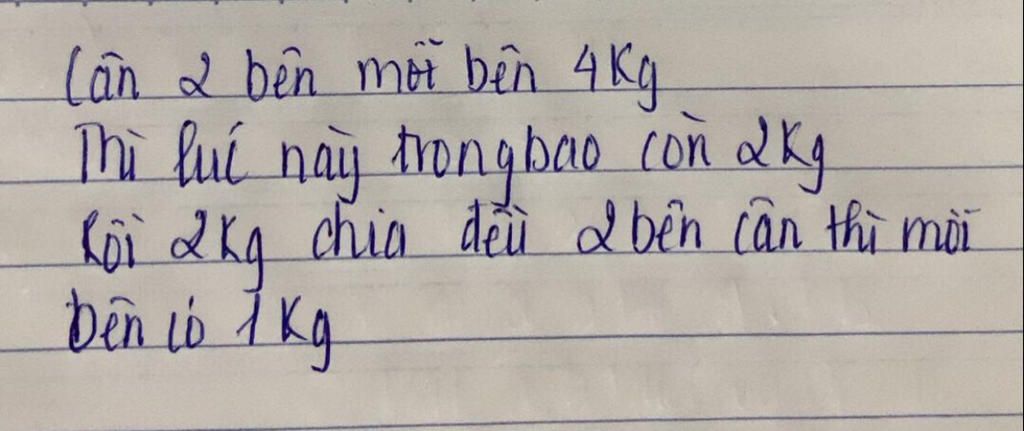 Cân 2 bên mỗi bên 4Kg
Thì lúc này trong bao còn 2Kg
Rồi 2Kg chia đều 2 bên cân thì mỗi
bên có 1Kg